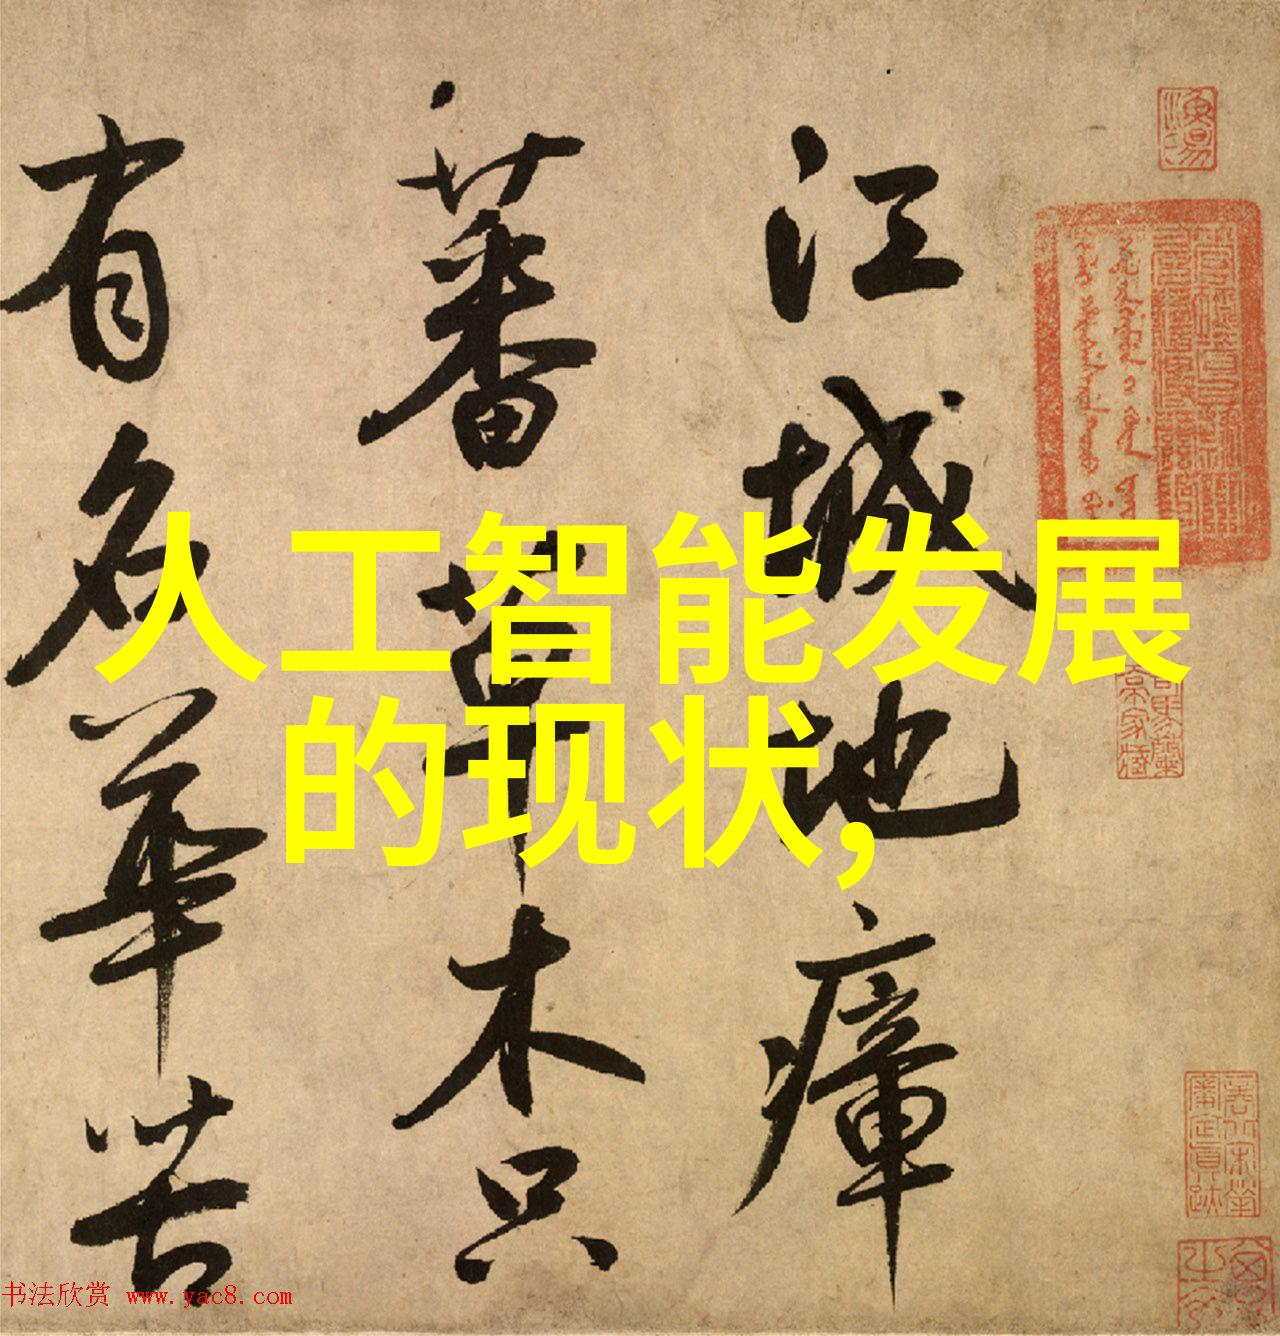 江城地瘴
蕃草木只
有名華苦
人工智能发展
的现状,
漁陽
书法欣赏 www.yac8.com